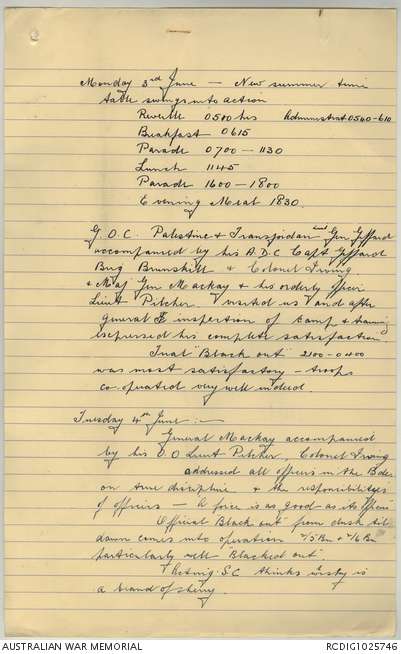 Monday 3rd June — New summer time
table swings into action
Reveille 0500 hrs Administrat 0540-610
Breakfast 0615
Parade 0700 — 1130
Lunch 1145
Parade 1600 — 1800
Evening Meal 1830
G.O.C. Palestine & Transjordan Gen Giffard
accompanied by his A.D.C Capt Giffard
Brig Brunskill & Colonel Irving
& Maj Gen Mackay & his orderly officer
Lieut Pitcher. visited us and after
general inspection of camp & training
expressed his complete satisfaction.
Trial "Black out" 2100-0400
was most satisfactory — troops
co-operated very well indeed.
Tuesday 4th June :—
General Mackay accompanied
by his O O Lieut Pitcher, Colonel Irving
addressed all officers in the Bde
on true discipline & the responsibilities
of officers — A force is as good as its officers
Official "Black out" from dusk till
dawn comes into operation 2/5 Bn & 2/6 Bn
particularly well "Blacked out"
Acting S.C thinks is
a brand of sherry.
AUSTRALIAN WAR MEMORIAL
RCDIG1025746